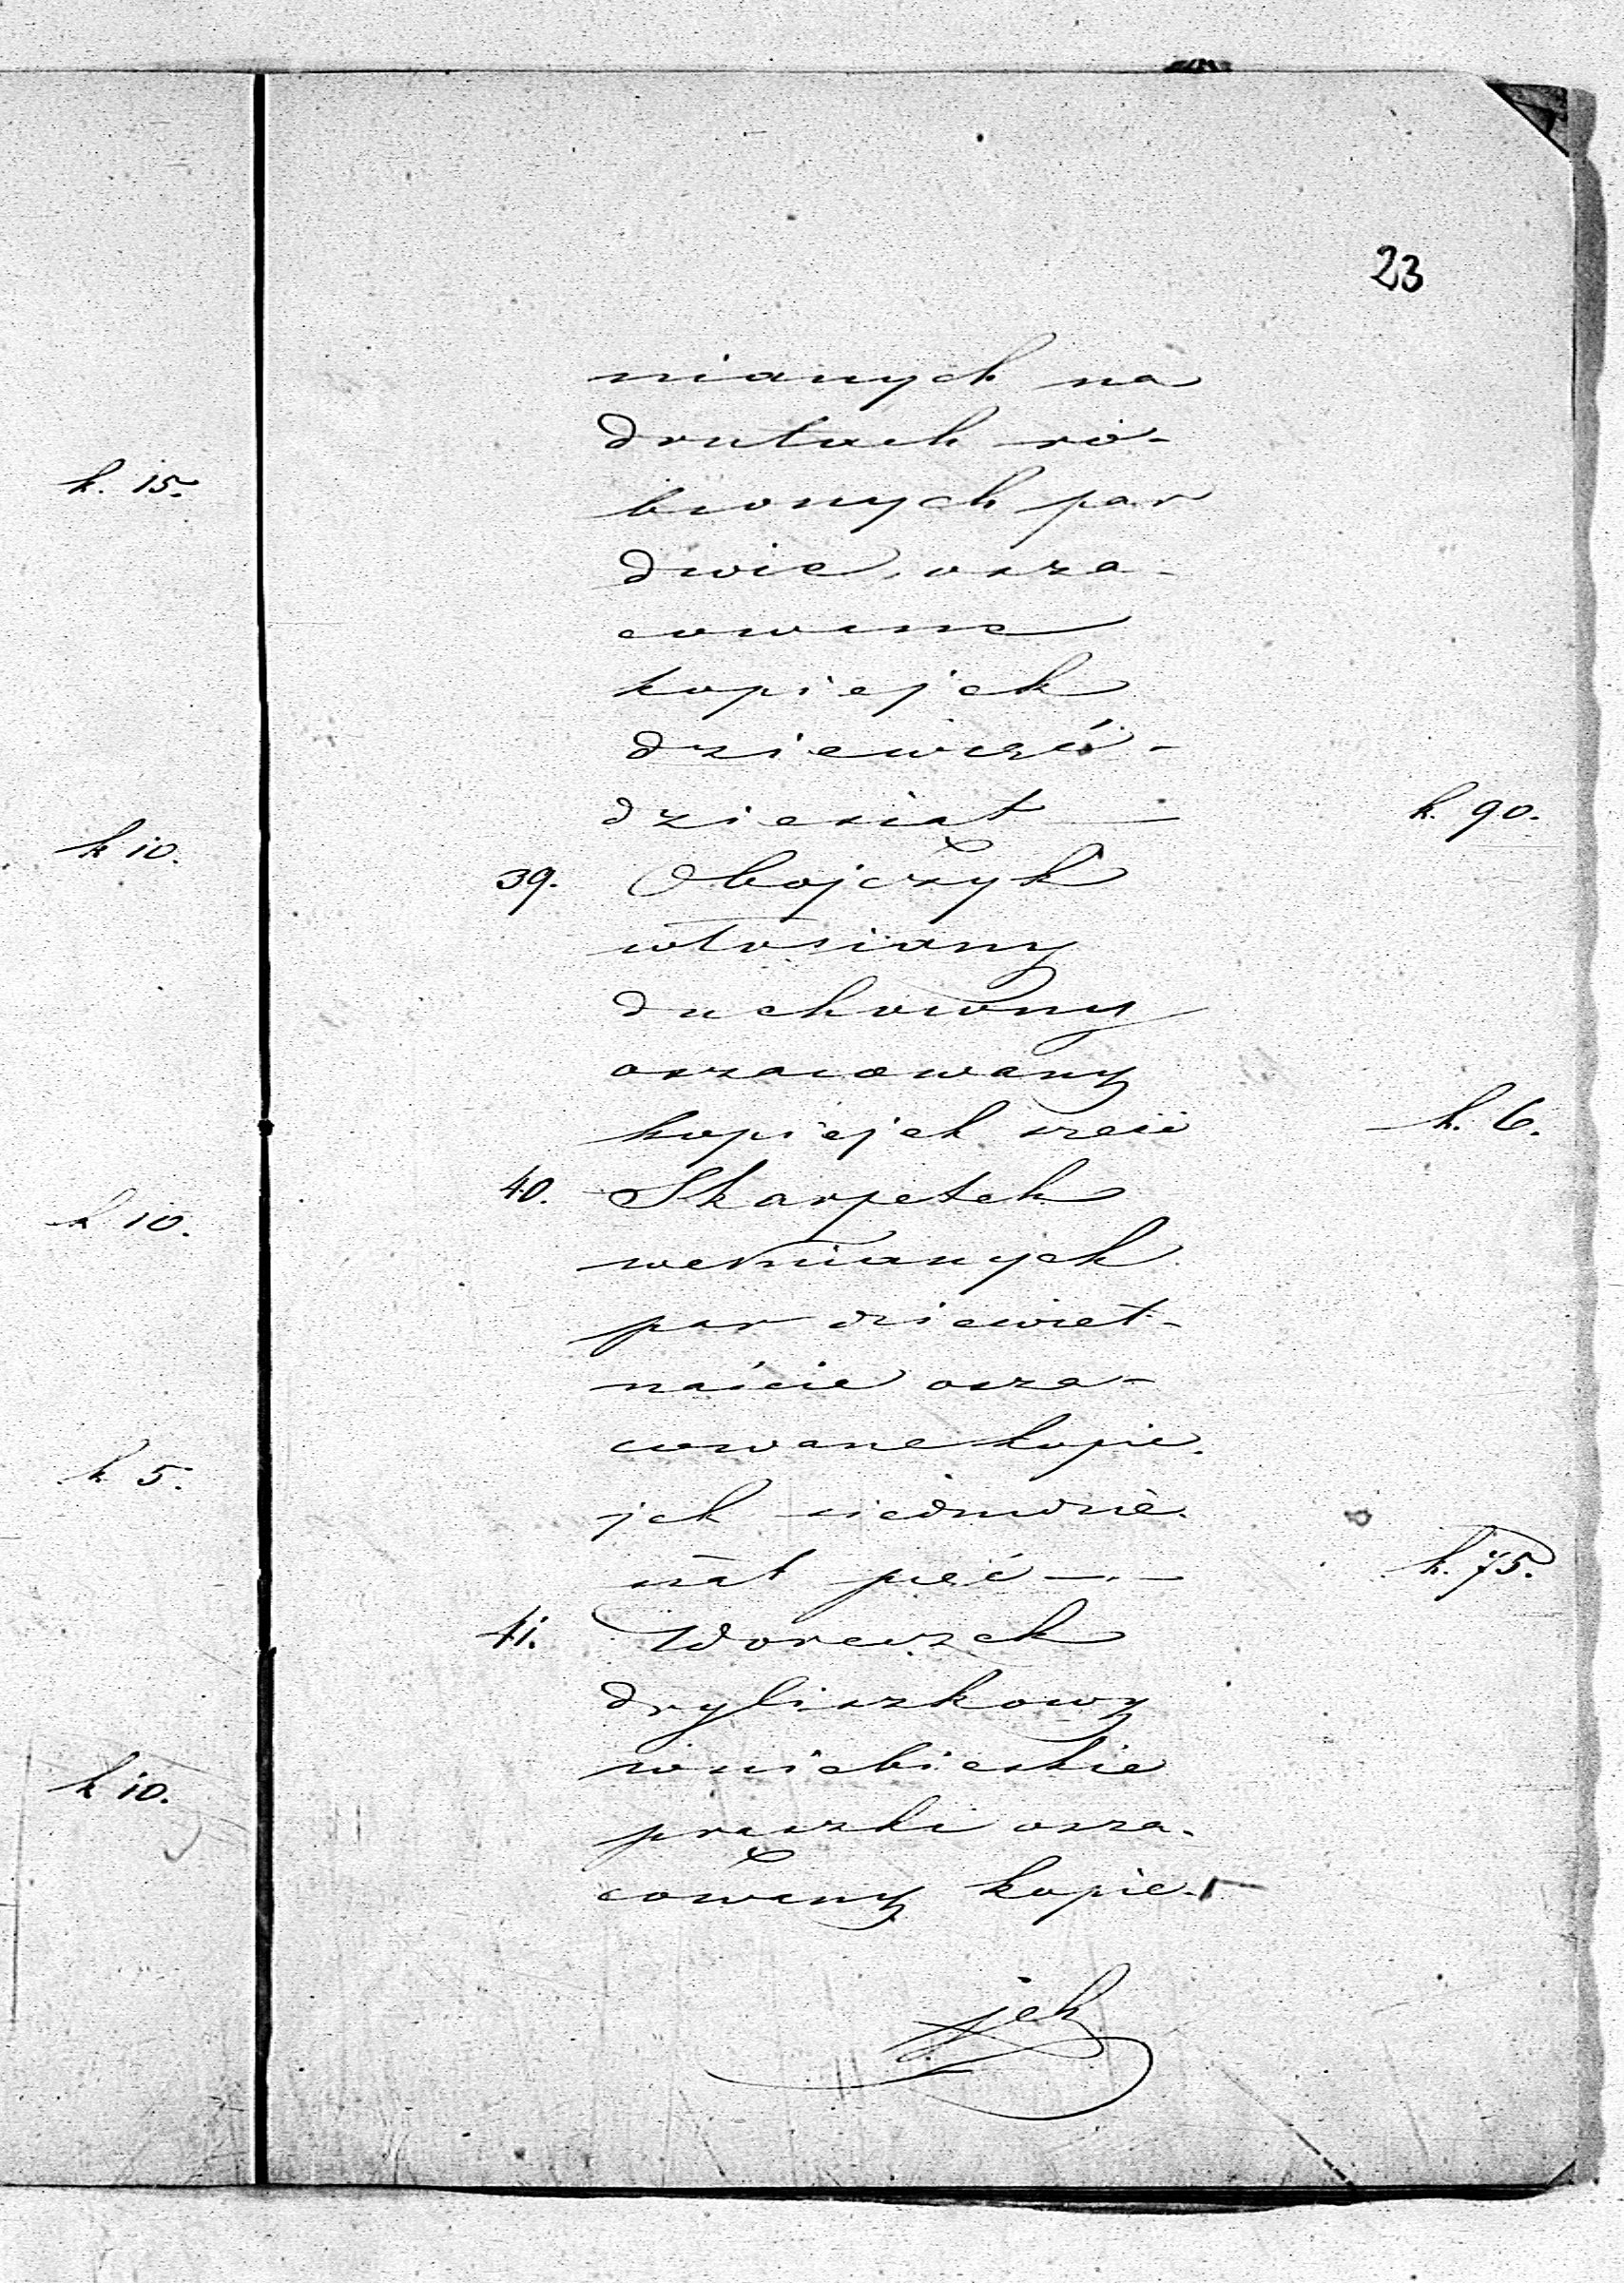 23
k. 15.
k 10.
k 10.
k 5.
k 10.
nianych na
drutach ro-
bionych par
dwie osza-
cowane
kopiejek
dziewięć-
dziesiąt — k. 90.
39. Obojczyk
włosiany
duchowny
oszacowany
kopiejek sześć k. 6.
40. Skarpetek
wełnianych
par dziewięt-
naście osza-
cowane kopie-
jek siedmdzie-
siąt pięć — k. 75.
41. Woreczek
dryliszkowy
w niebieskie
prążki osza-
cowany kopie-
jek